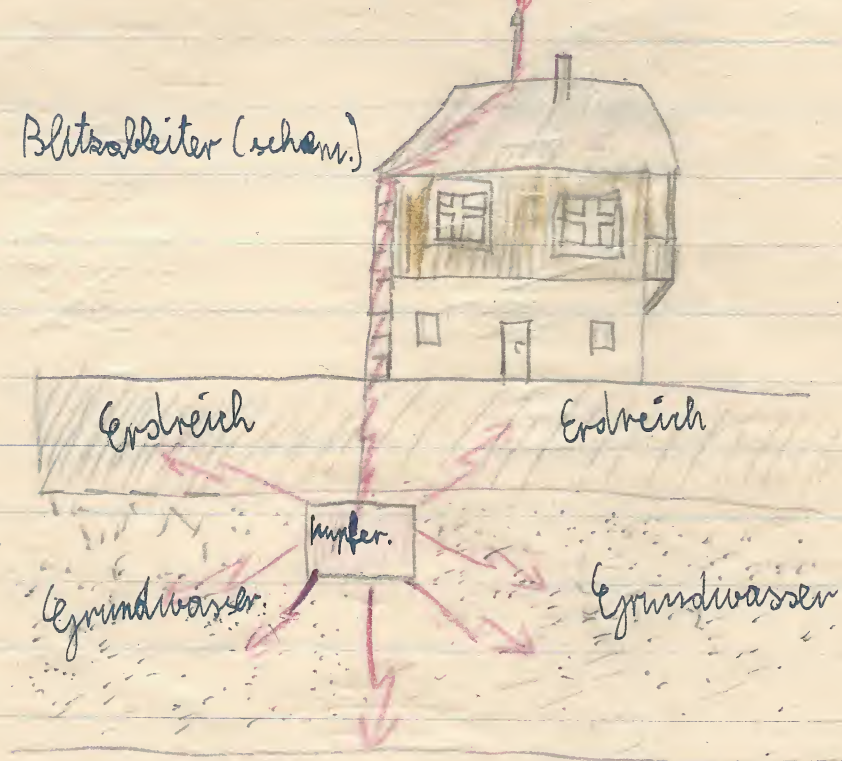 Blitzableiter (schem.)
Erdreich
Erdreich
Kupfer.
Grundwasser.
Grundwasser